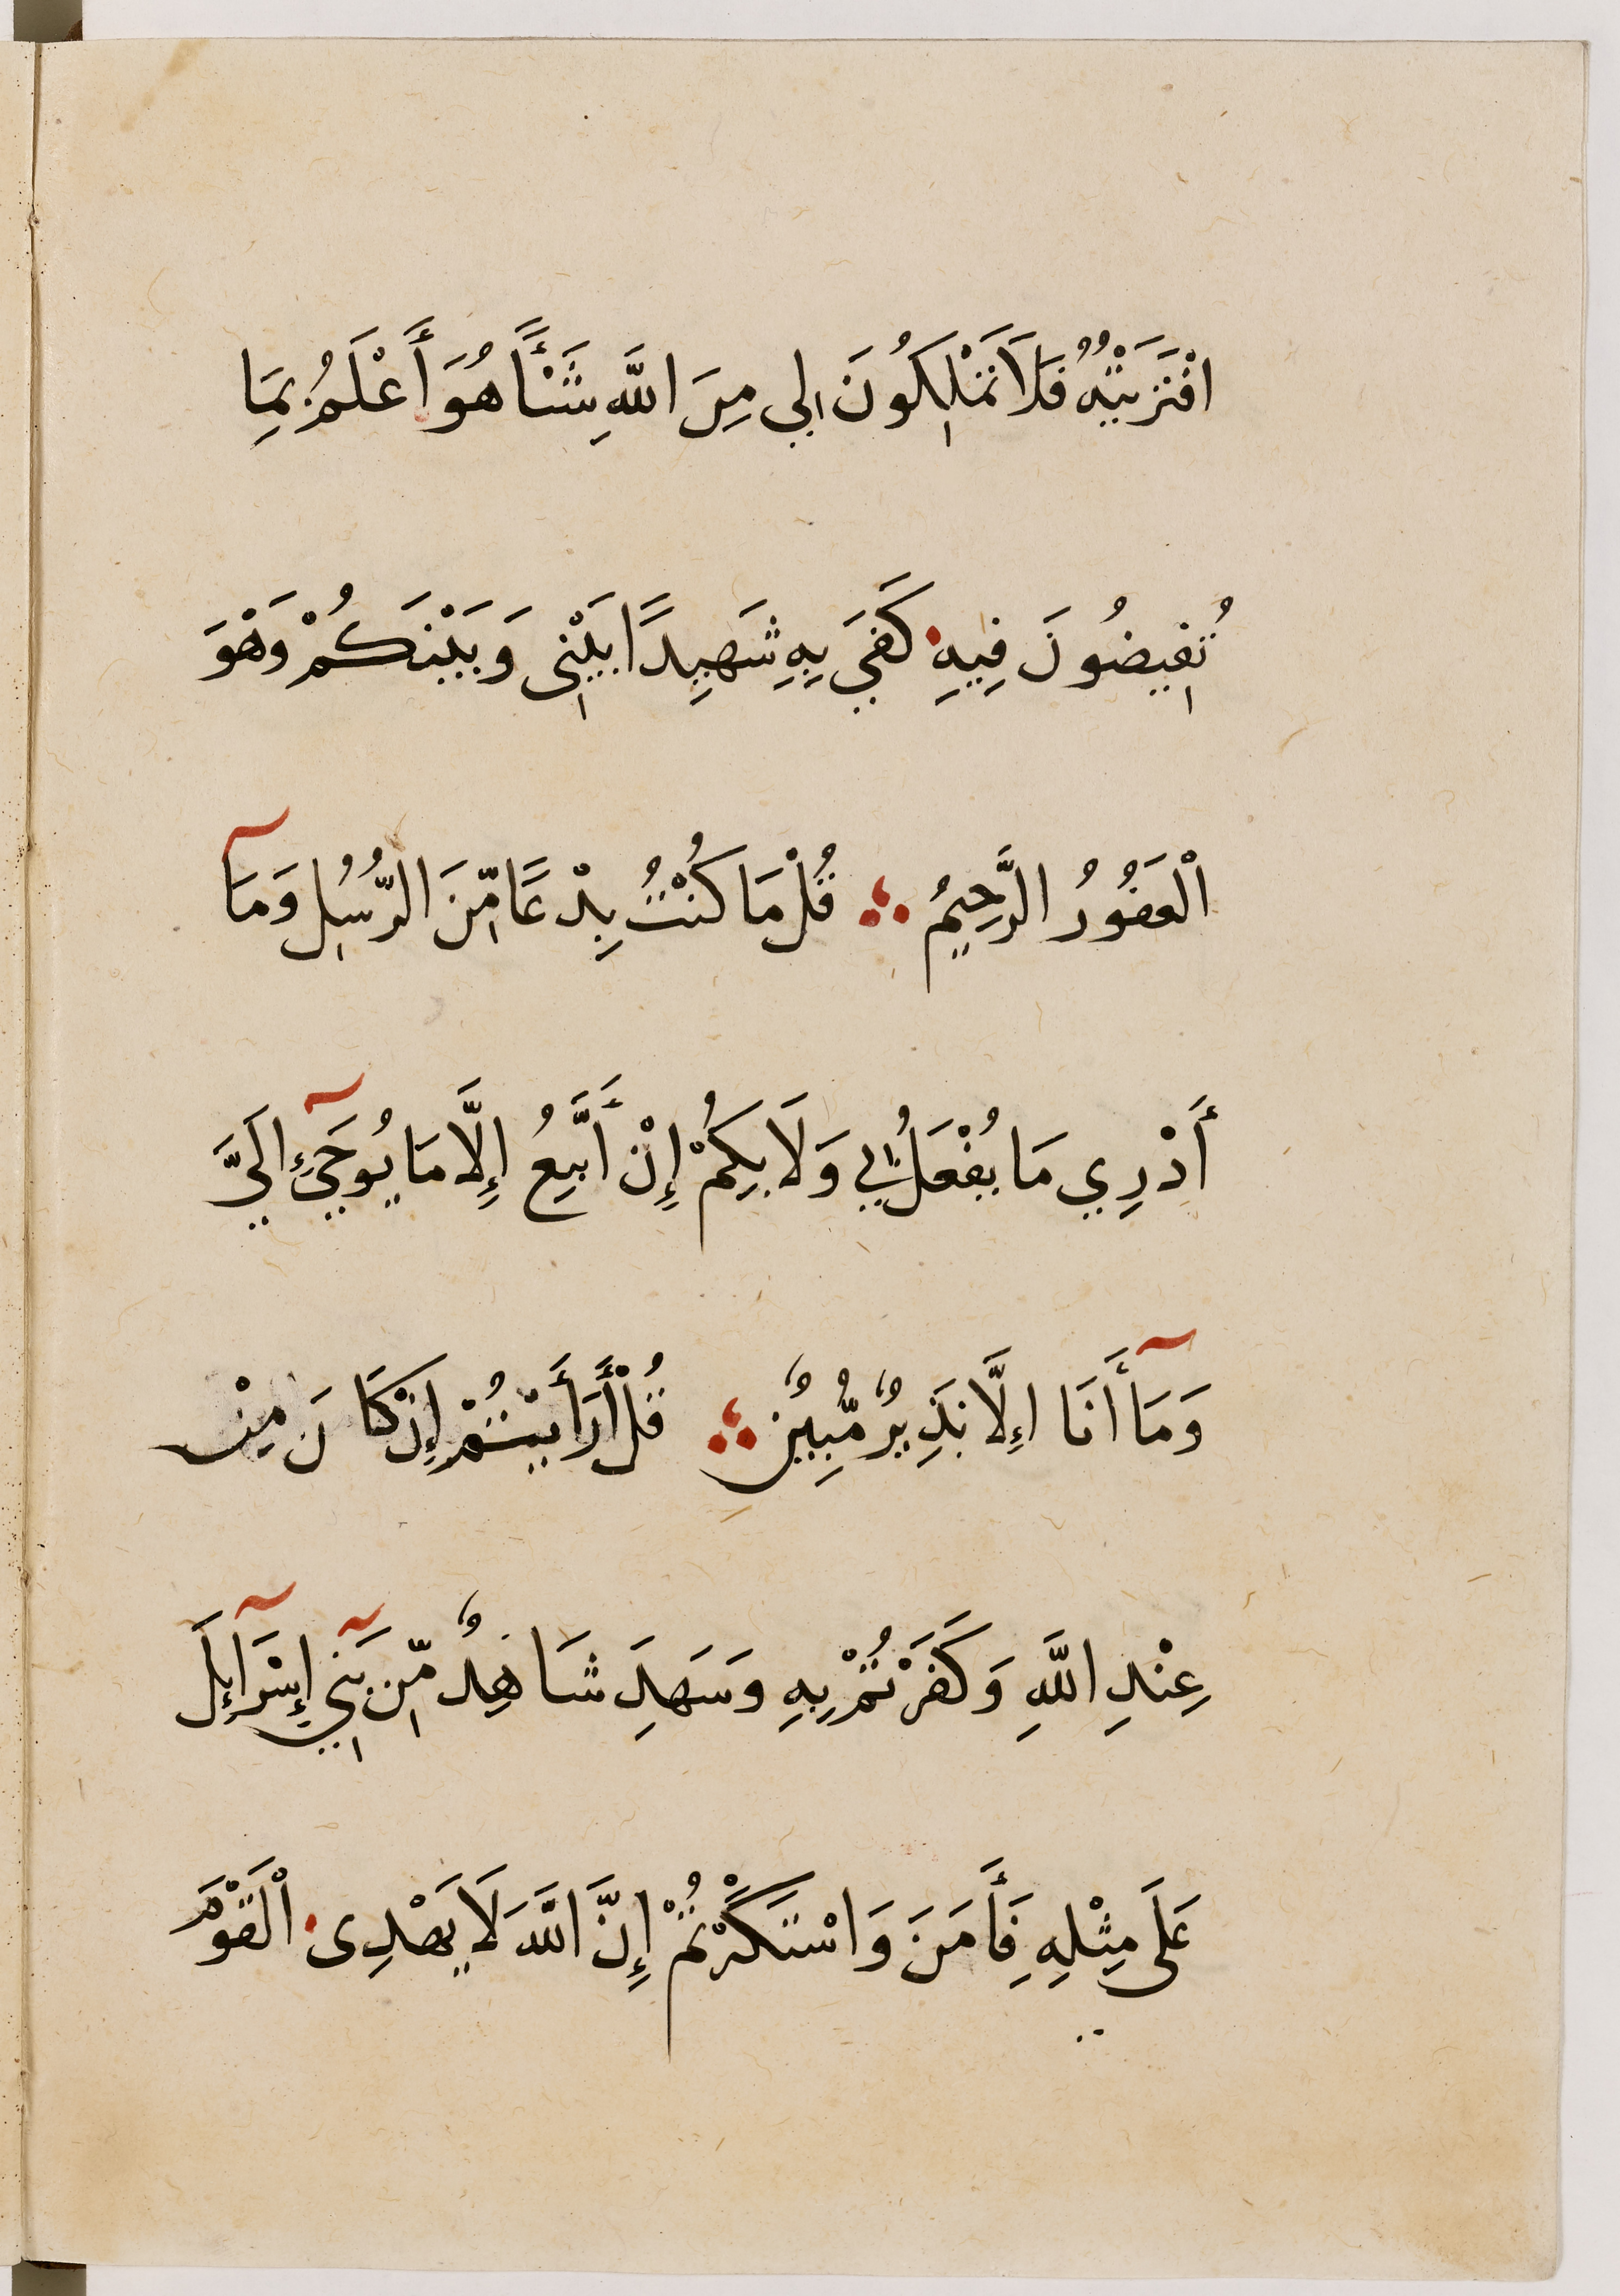 افْتَرَيْتُهُ فَلَا تَمْلِكُونَ لِي مِنَ اللَّهِ شَئًْا هُوَ أَعْلَمُ بِمَا
تُفِيضُونَ فِيهِ كَفَىٰ بِهِ شَهِيدًا بَيْنِي وَبَيْنَكُمْ وَهْوَ
الْغَفُورُ الرَّحِيمُ ؞ قُلْ مَا كُنْتُ بِدْعًا مِّنَ الرُّسُلِ وَمَآ
أَدْرِي مَا يُفْعَلُ بِي وَلَا بِكُمْ إِنْ أَتَّبِعُ إِلَّا مَا يُوحَىٰٓ إِلَيَّ
وَمَآ أَنَا إِلَّا نَذِيرٌ مُّبِينٌ ؞ قُلْ أَرَأَيْتُمْ إِنْ كَانَ مِنْ
عِنْدِ اللَّهِ وَكَفَرْتُمْ بِهِ وَسَهِدَ شَاهِدٌ مِّنْ بَنِيٓ إِسْرَآئِلَ
عَلَى مِثْلِهِ فَأَمَنَ وَاسْتَكْبَرْتُمْ إِنَّ اللَّهَ لَا يَهْدِى الْقَوْمَ